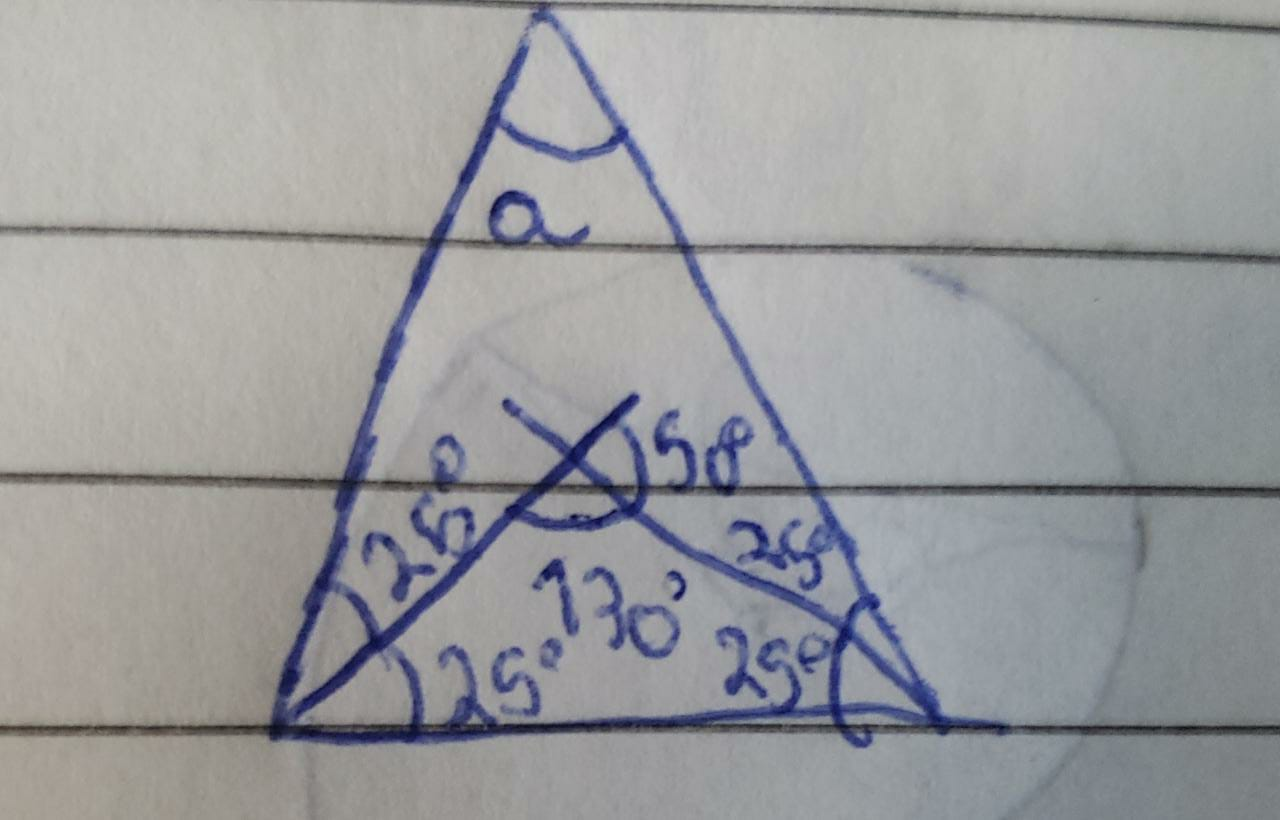 a
50
25°
25°
130°
25°
25°